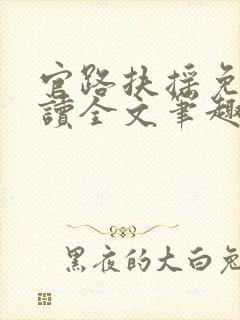 官路扶搖免
讀全文筆趣
黑夜的大白兔